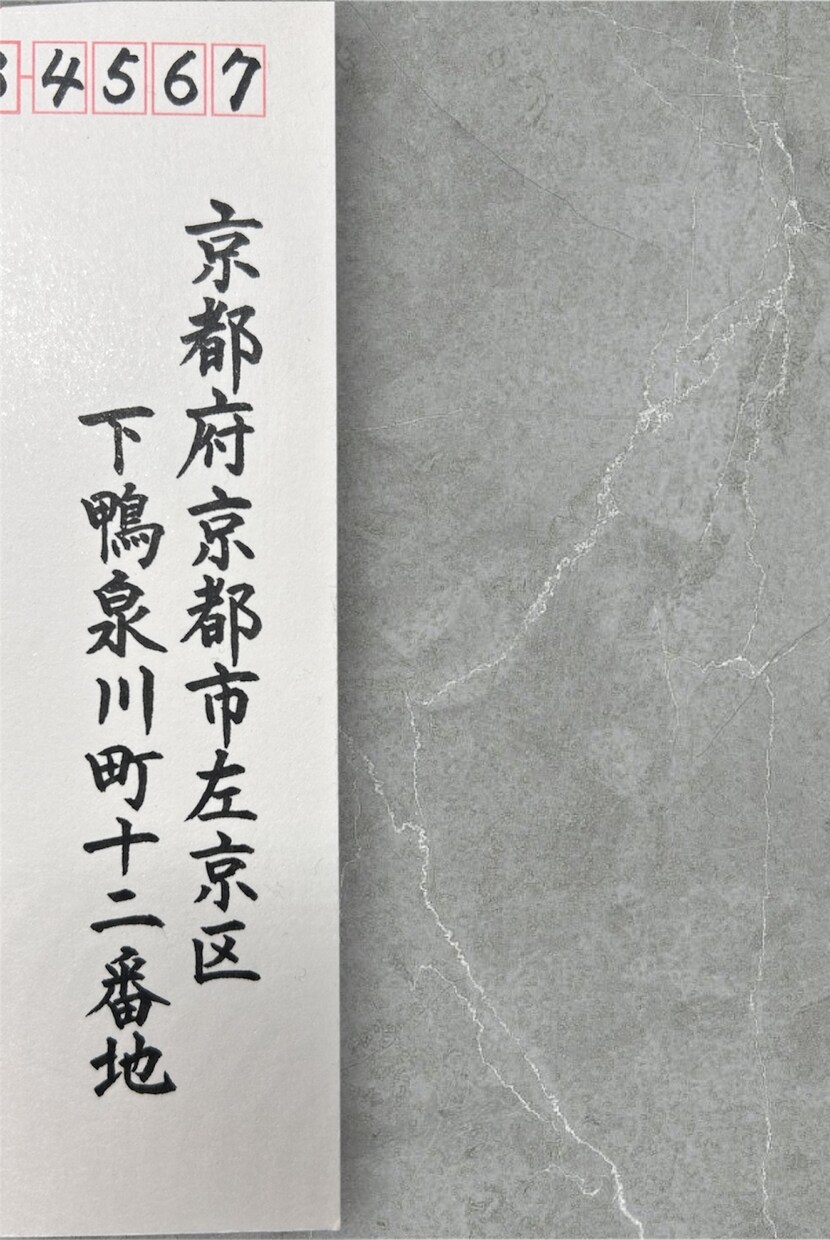 4567
京都府京都市左京区
下鴨泉川町十二番地